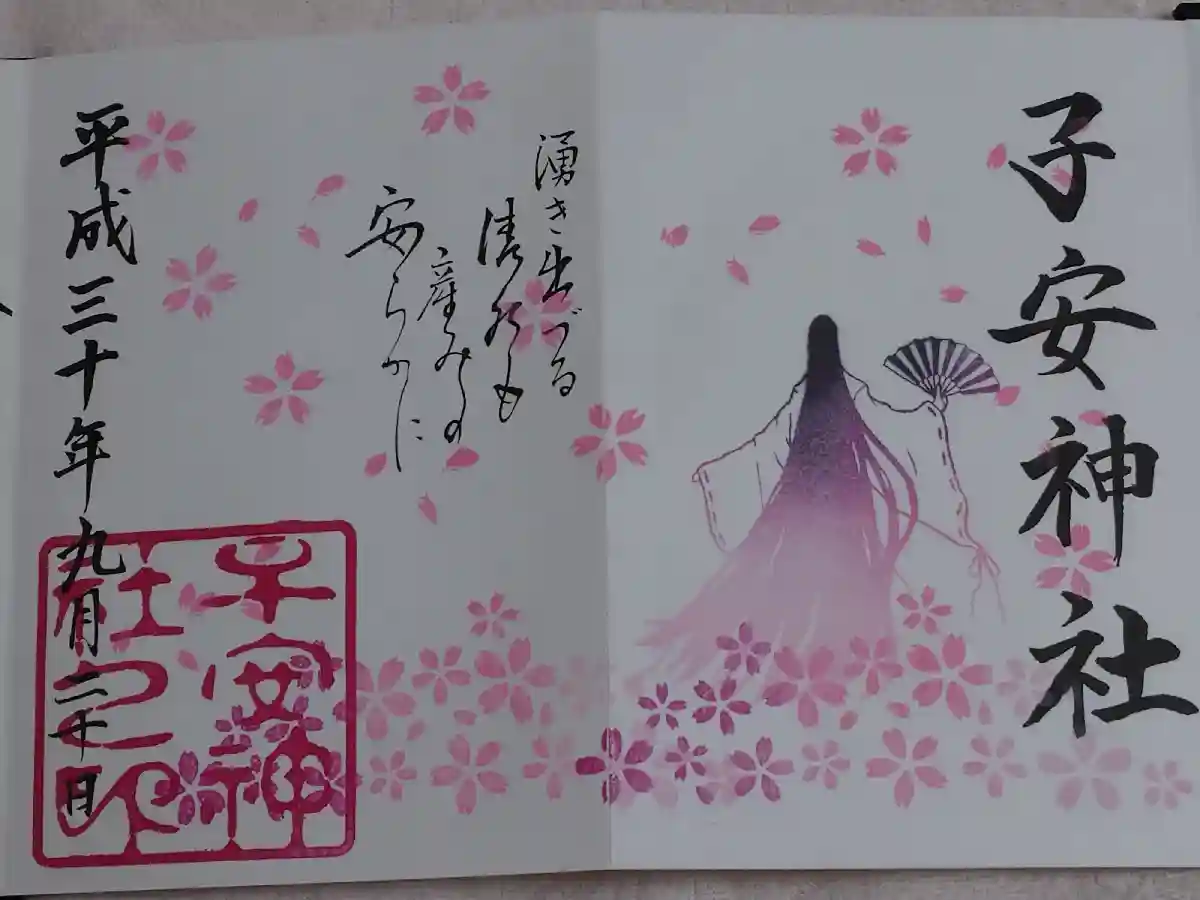 子安神社
湧き出づる
清水も
産みの
安らかに
平成三十年九月二十日
子安神社之印